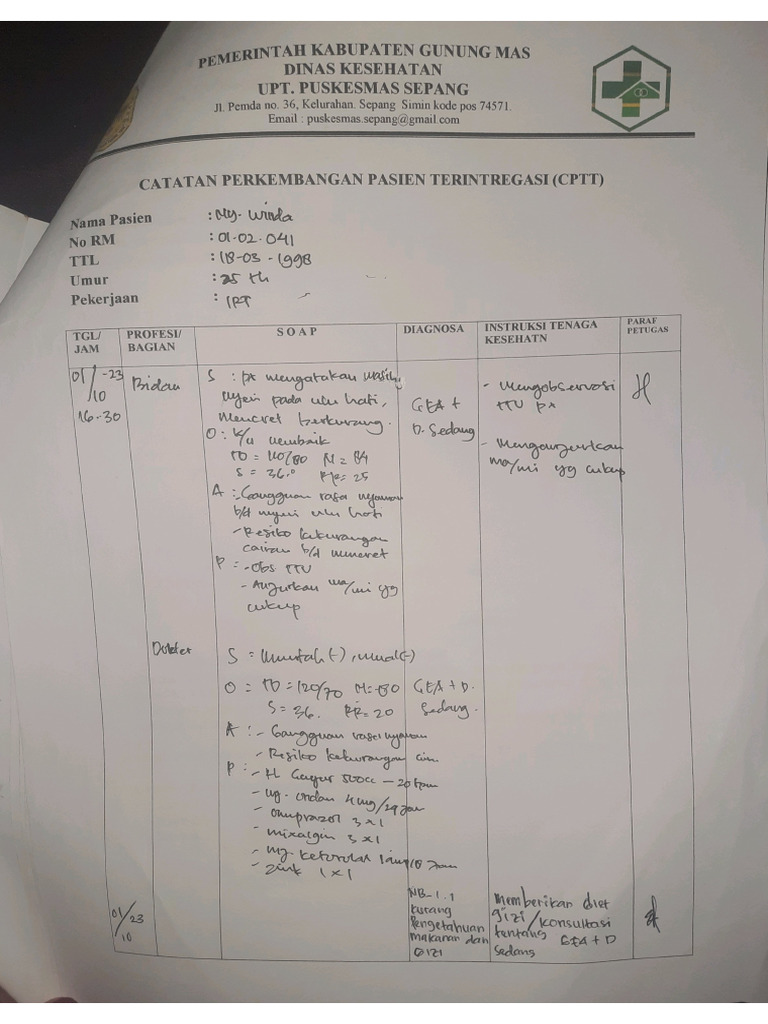 PEMERINTAH KABUPATEN GUNUNG MAS
DINAS KESEHATAN
UPT. PUSKESMAS SEPANG
Jl. Pemda no. 36, Kelurahan. Sepang Simin kode pos 74571.
Email : puskesmas.sepang@gmail.com
CATATAN PERKEMBANGAN PASIEN TERINTREGASI (CPTT)
Nama Pasien : Ny. Winda
No RM : 01.02.041
TTL : 18-03-1998
Umur : 25 th
Pekerjaan : IRT
TGL/ JAM
PROFESI/ BAGIAN
S O A P
DIAGNOSA
INSTRUKSI TENAGA KESEHATN
PARAF PETUGAS
01/10-23
16.30
Bidan
S : px mengatakan masih
nyeri pada ulu hati,
mencret berkurang.
O : K/u membaik
TD = 110/80 N = 84
S = 36.0 RR = 25
A : - Gangguan rasa nyaman
b/d nyeri ulu hati
- Resiko kekurangan
cairan b/d mencret
P = - Obs TTV
- Anjurkan ma/mi yg
cukup
GEA +
D. Sedang
- Mengobservasi
TTV px
- Menganjurkan
ma/mi yg cukup
Dokter
S = Muntah (-), mual (-)
O = TD = 120/70 N = 80
S = 36. RR = 20
A : - Gangguan rasa nyaman
- Resiko kekurangan
P : - 500cc - 20 tpm
- ondan 4mg/
- omeprazol 3 x 1
- mixalgin 3 x 1
- ketorolac
- zink 1 x 1
GEA + D.
Sedang.
01/10 23
NB-1.1
kurang
pengetahuan
makanan dan
Gizi
memberikan diet
gizi/konsultasi
tentang GEA + D
sedang